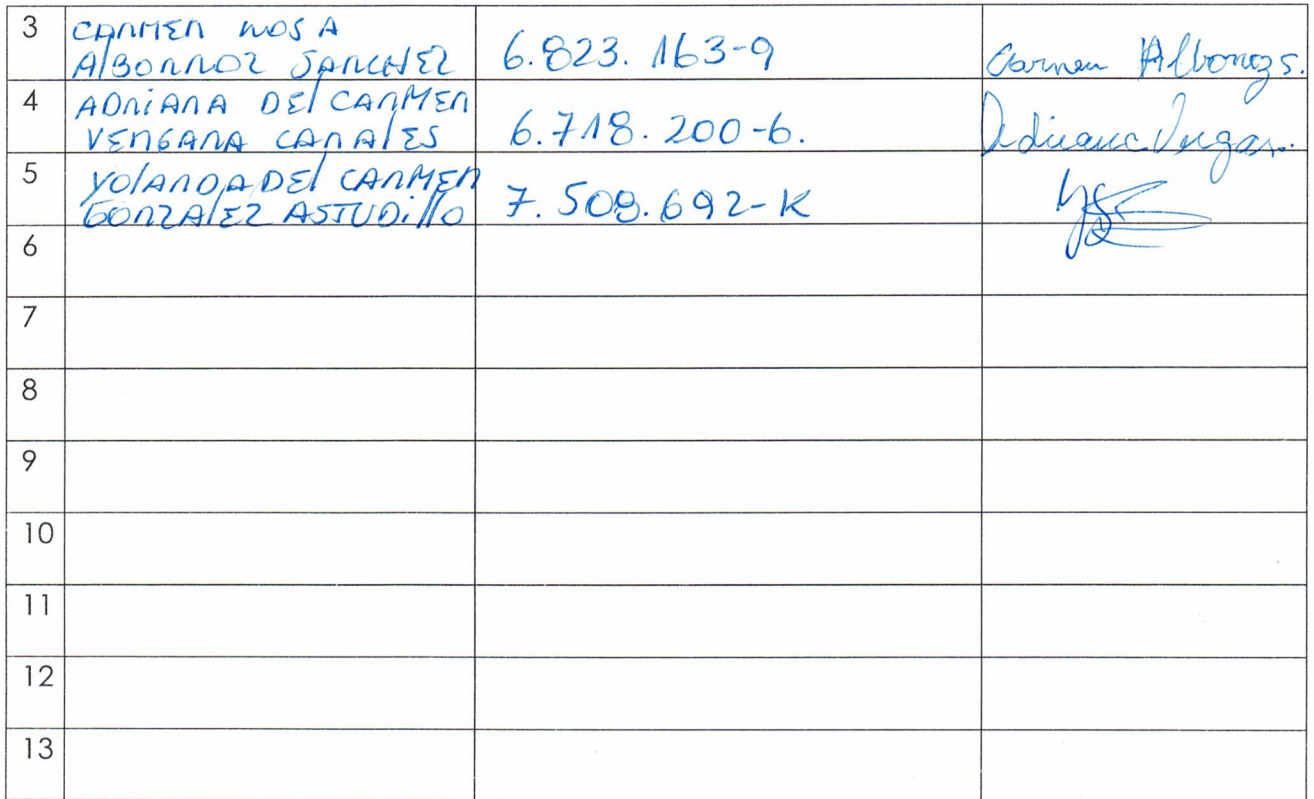 3 CARMEN ROSA
ALBORNOZ SANCHEZ 6.823.163-9 Carmen Albornoz S.
4 ADRIANA DEL CARMEN
VERGARA CANALES 6.718.200-6. Adriana Vergara.
5 YOLANDA DEL CARMEN
GONZALEZ ASTUDILLO 7.508.692-K
6
7
8
9
10
11
12
13